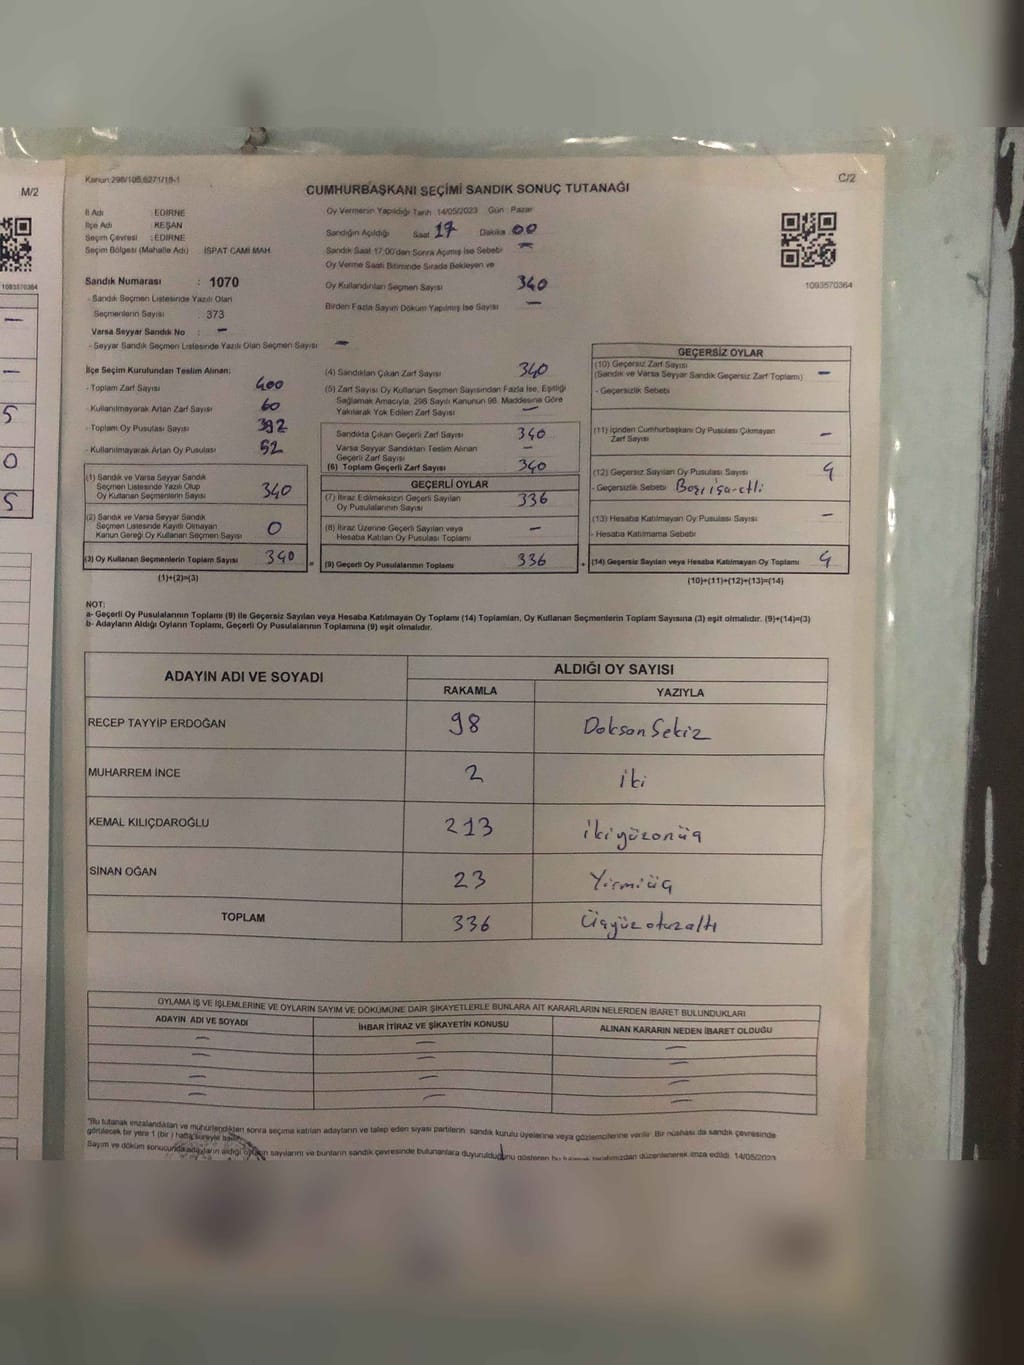 M/2
1093570364
5
0
5
Kanun:298/105,6271/19-1
C/2
CUMHURBAŞKANI SEÇİMİ SANDIK SONUÇ TUTANAĞI
İl Adı : EDİRNE
İlçe Adı : KEŞAN
Seçim Çevresi : EDİRNE
Seçim Bölgesi (Mahalle Adı) İSPAT CAMİ MAH.
Sandık Numarası : 1070
- Sandık Seçmen Listesinde Yazılı Olan
Seçmenlerin Sayısı : 373
Varsa Seyyar Sandık No : -
- Seyyar Sandık Seçmen Listesinde Yazılı Olan Seçmen Sayısı -
Oy Vermenin Yapıldığı Tarih 14/05/2023 Gün : Pazar
Sandığın Açıldığı Saat 17 Dakika 00
Sandık Saat 17:00'dan Sonra Açılmış İse Sebebi -
Oy Verme Saati Bitiminde Sırada Bekleyen ve
Oy Kullandırılan Seçmen Sayısı 340
Birden Fazla Sayım Döküm Yapılmış İse Sayısı -
1093570364
İlçe Seçim Kurulundan Teslim Alınan:
- Toplam Zarf Sayısı 400
- Kullanılmayarak Artan Zarf Sayısı 60
- Toplam Oy Pusulası Sayısı 392
- Kullanılmayarak Artan Oy Pusulası 52
(1) Sandık ve Varsa Seyyar Sandık
Seçmen Listesinde Yazılı Olup
Oy Kullanan Seçmenlerin Sayısı 340
(2) Sandık ve Varsa Seyyar Sandık
Seçmen Listesinde Kayıtlı Olmayan
Kanun Gereği Oy Kullanan Seçmen Sayısı 0
(3) Oy Kullanan Seçmenlerin Toplam Sayısı 340 =
(1)+(2)=(3)
(4) Sandıktan Çıkan Zarf Sayısı 340
(5) Zarf Sayısı Oy Kullanan Seçmen Sayısından Fazla İse, Eşitliği
Sağlamak Amacıyla, 298 Sayılı Kanunun 98. Maddesine Göre
Yakılarak Yok Edilen Zarf Sayısı -
Sandıkta Çıkan Geçerli Zarf Sayısı 340
Varsa Seyyar Sandıktan Teslim Alınan
Geçerli Zarf Sayısı -
(6) Toplam Geçerli Zarf Sayısı 340
GEÇERLİ OYLAR
(7) İtiraz Edilmeksizin Geçerli Sayılan
Oy Pusulası Sayısı 336
(8) İtiraz Üzerine Geçerli Sayılan veya
Hesaba Katılan Oy Pusulası Toplamı -
(9) Geçerli Oy Pusulalarının Toplamı 336 +
GEÇERSİZ OYLAR
(10) Geçersiz Zarf Sayısı
(Sandık ve Varsa Seyyar Sandık Geçersiz Zarf Toplamı) -
- Geçersizlik Sebebi
(11) İçinden Cumhurbaşkanı Oy Pusulası Çıkmayan
Zarf Sayısı -
(12) Geçersiz Sayılan Oy Pusulası Sayısı 4
- Geçersizlik Sebebi
(13) Hesaba Katılmayan Oy Pusulası Sayısı -
- Hesaba Katılmama Sebebi
(14) Geçersiz Sayılan veya Hesaba Katılmayan Oy Toplamı 4
(10)+(11)+(12)+(13)=(14)
NOT:
a- Geçerli Oy Pusulalarının Toplamı (9) ile Geçersiz Sayılan veya Hesaba Katılmayan Oy Toplamı (14) Toplamları, Oy Kullanan Seçmenlerin Toplam Sayısına (3) eşit olmalıdır. (9)+(14)=(3)
b- Adayların Aldığı Oyların Toplamı, Geçerli Oy Pusulalarının Toplamına (9) eşit olmalıdır.
ADAYIN ADI VE SOYADI
ALDIĞI OY SAYISI
RAKAMLA YAZIYLA
RECEP TAYYİP ERDOĞAN 98 Doksan Sekiz
MUHARREM İNCE 2 iki
KEMAL KILIÇDAROĞLU 213 ikiyüzonüç
SİNAN OĞAN 23 Yirmiüç
TOPLAM 336 Üçyüz otuzaltı
OYLAMA İŞ VE İŞLEMLERİNE VE OYLARIN SAYIM VE DÖKÜMÜNE DAİR ŞİKAYETLERLE BUNLARA AİT KARARLARIN NELERDEN İBARET BULUNDUKLARI
ADAYIN ADI VE SOYADI İHBAR İTİRAZ VE ŞİKAYETİN KONUSU ALINAN KARARIN NEDEN İBARET OLDUĞU
"Bu tutanak imzalandıktan ve mühürlendikten sonra seçime katılan adayların ve talep eden siyasi partilerin sandık kurulu üyelerine veya gözlemcilerine verilir. Bir nüshası da sandık çevresinde
görülecek bir yere 1 (bir ) hafta süreyle
Sayım ve döküm sonucunda adayların aldığı oyların sayılarını ve bunların sandık çevresinde bulunanlara duyurulduğunu gösteren bu tutanak tarafımızdan düzenlenerek imza edildi. 14/05/2023